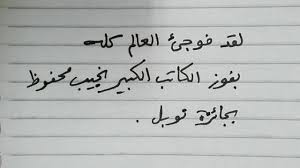 لقد فوجئ العالم كله
بفوز الكاتب الكبير نجيب محفوظ
بجائزة نوبل .